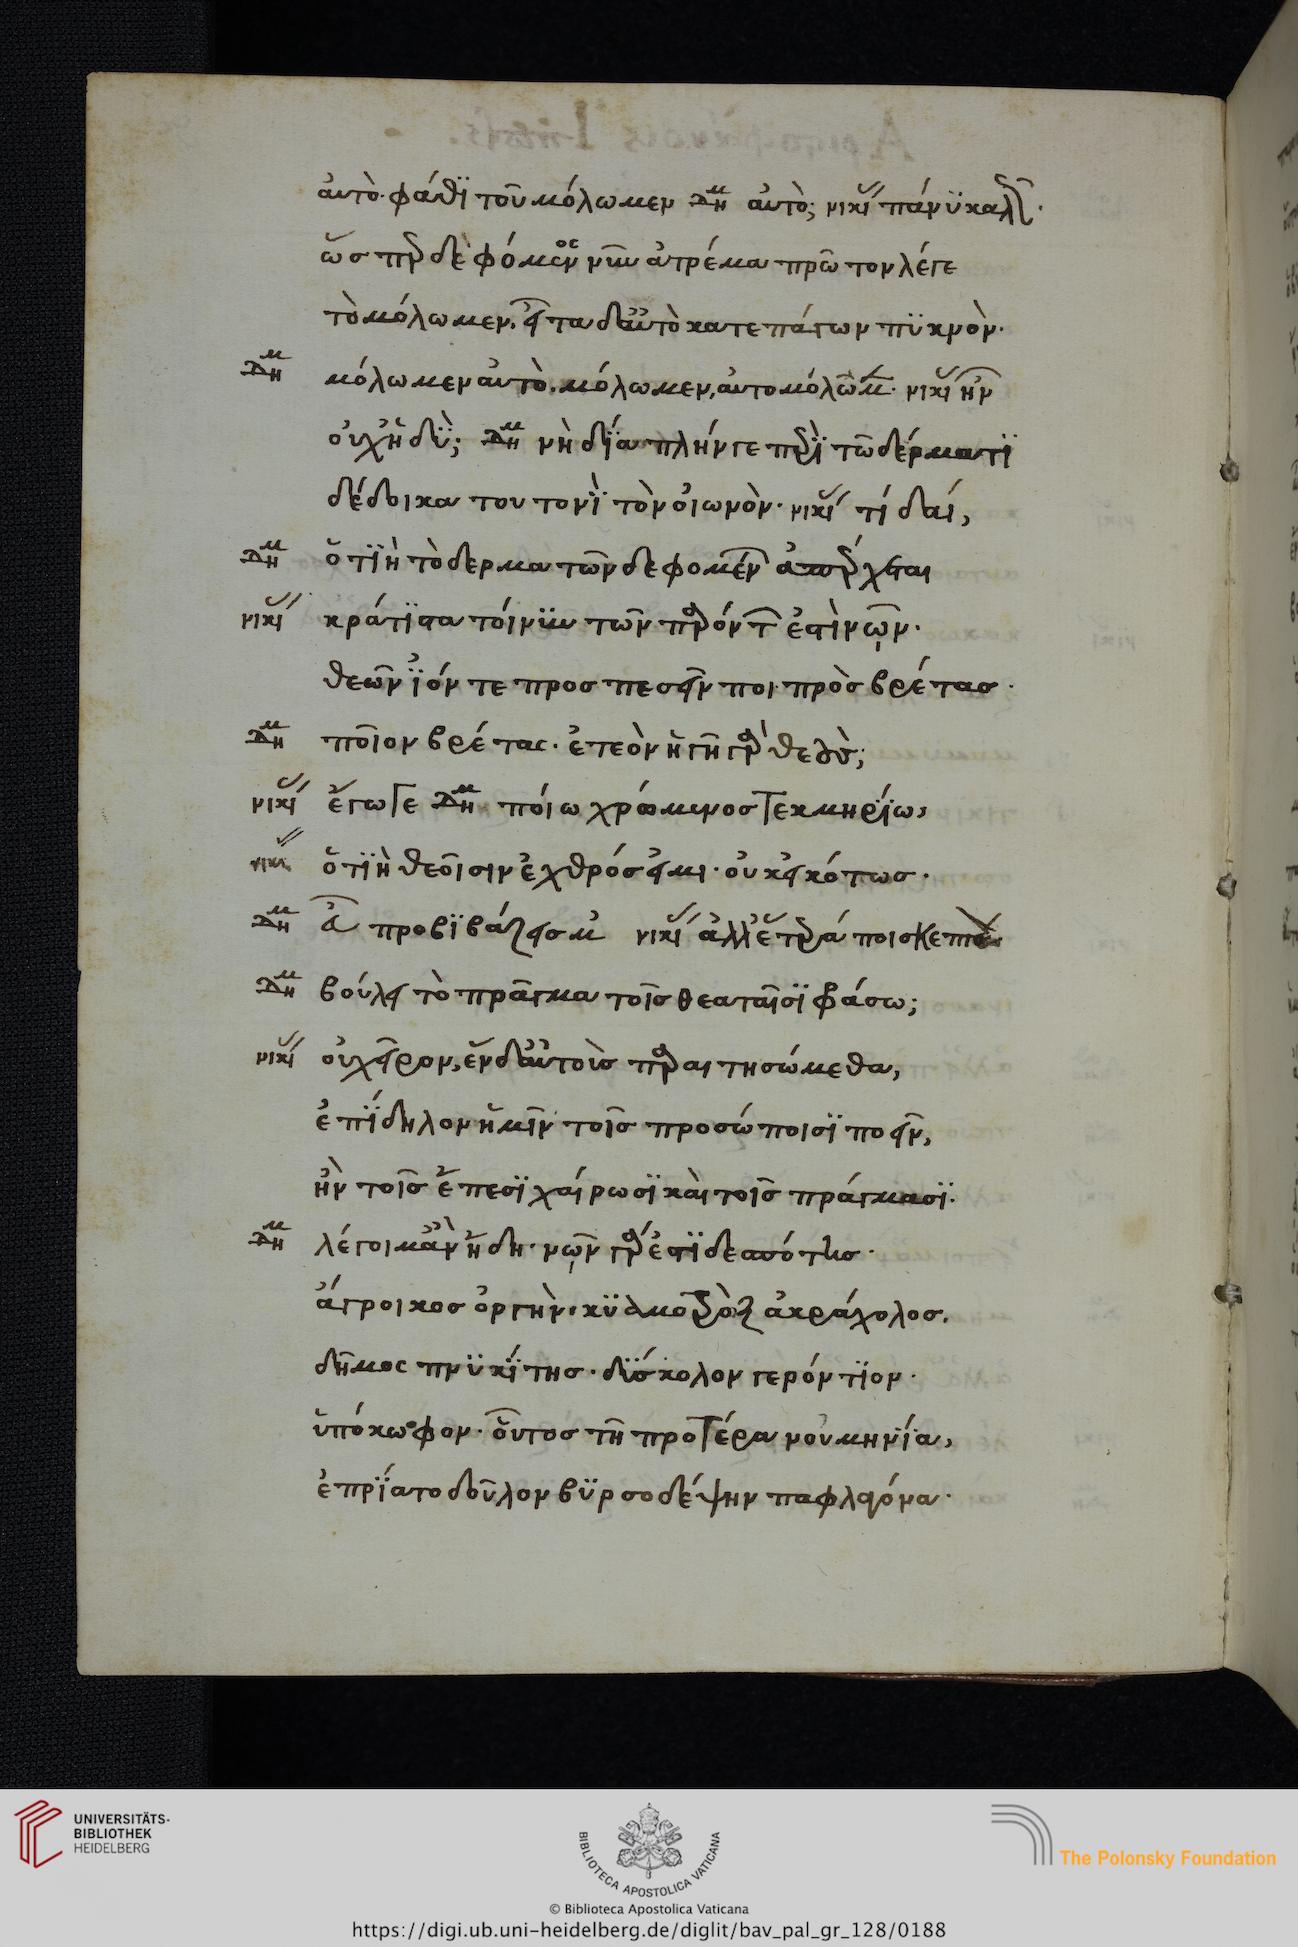 αὐτὸ· φάθϊ τοῦ μόλωμεν Δημ αὐτὸ; νικί πάνϋ καλ.
ὥσπερ δεφόμενος νῦν ἀτρέμα πρῶτον λέγε
τὸ μόλωμεν, εἶτα δ' αὐτὸ κατεπάγων πϋκνὸν·
Δημ μόλωμεν αὐτὸ. μόλωμεν, αὐτομόλῶμ. νικί ἢν
οὐχ ἡδὺ; Δημ νὴ δΐα πλήν γε περὶ τῶ δέρματϊ
δέδοικα τουτονῒ τὸν οἰωνὸν· νικί τί δαί,
Δημ ὅτϊὴ τὸ δερμα τῶν δεφομένων ἀπέρχεται
νικί κράτϊστα τοίνϋν τῶν παρόντ ἐστὶν νῶϊν·
θεῶν ἰόντε προσπεσεῖν ποι πρὸς βρέτας·
Δημ ποῖον βρέτας· ἐτεὸν ἡγῆ γὰρ θεοὺς;
νικί ἔγωγε Δημ ποίω χρώμενος τεκμηρίω,
νικί ὅτϊὴ θεοῖσιν ἐχθρός εἰμι· οὐκ εἰκότως·
Δημ εὖ προβϊβάζεισ μ' νικί ἀλλ' ἑτέρά ποι σκεπτέον
Δημ βούλει τὸ πρᾶγμα τοῖς θεαταῖσϊ φράσω;
νικί οὐ χεῖρον, ἓν δ' αὐτοὺς παραιτησώμεθα,
ἐπΐδηλον ἡμῖν τοῖς προσώποισϊ ποεῖν,
ἢν τοῖς ἔπεσϊ χαίρωσϊ καὶ τοῖς πράγμασϊ.
Δημ λέγοιμ' ἂν ἤδη· νῶϊν γάρ ἐστϊ δεσπότης·
ἄγροικος ὀργὴν· κϋαμοτρὼξ ἀκράχολος,
δῆμος πνϋκΐτης· δΰσκολον γερόντϊον·
ὑπόκωφον· οὗτος τῆ προτέρα νουμηνία,
ἐπρΐατο δοῦλον βϋρσοδέψην παφλαγόνα·
UNIVERSITÄTS-
BIBLIOTHEK
HEIDELBERG
BIBLIOTECA APOSTOLICA VATICANA
The Polonsky Foundation
© Biblioteca Apostolica Vaticana
https://digi.ub.uni-heidelberg.de/diglit/bav_pal_gr_128/0188